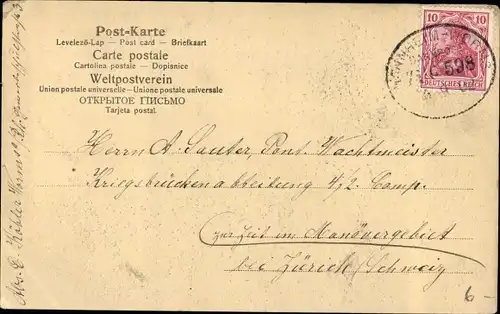 Post-Karte
Levelező-Lap — Post card — Briefkaart
Carte postale
Cartolina postale — Dopisnice
Weltpostverein
Union postale universelle — Unione postale universale
ОТКРЫТОЕ ПИСЬМО
Tarjeta postal.
10 10
DEUTSCHES REICH
598
Herrn A. Sauter, Pont. Wachtmeister
Kriegsbrückenabteilung 4/2. Comp.
zur Zeit im Manövergebiet
bei Zürich/Schweiz
Abs. E. Köhler Worms
6-